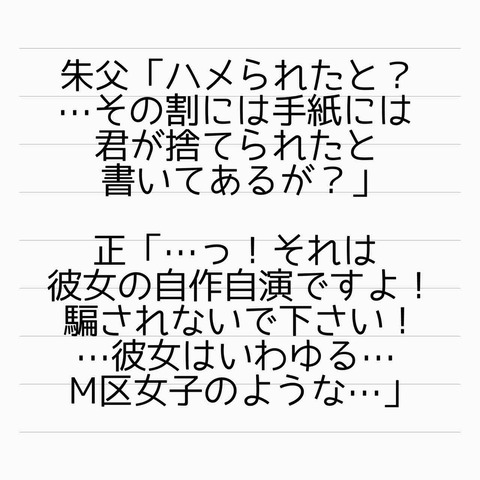 朱父「ハメられたと？
…その割には手紙には
君が捨てられたと
書いてあるが？」
正「…っ！それは
彼女の自作自演ですよ！
騙されないで下さい！
…彼女はいわゆる…
M区女子のような…」